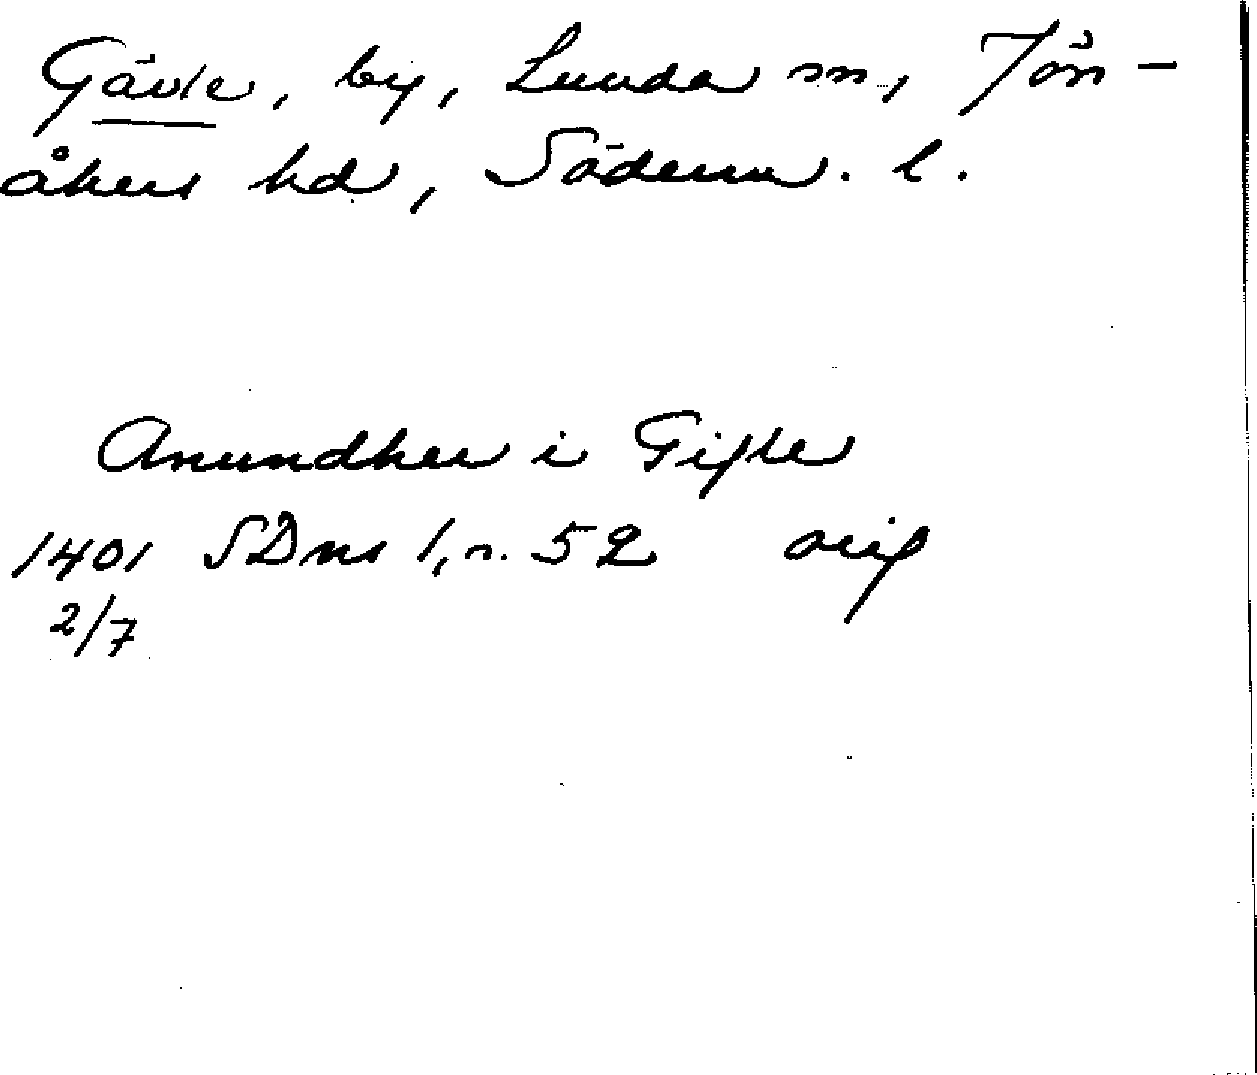 Gävle, by, Lunda sn, Jön-
åkers hd, Söderm. l.
Anundher i Gifle
1401 SDns 1, n. 52 orig
2/7